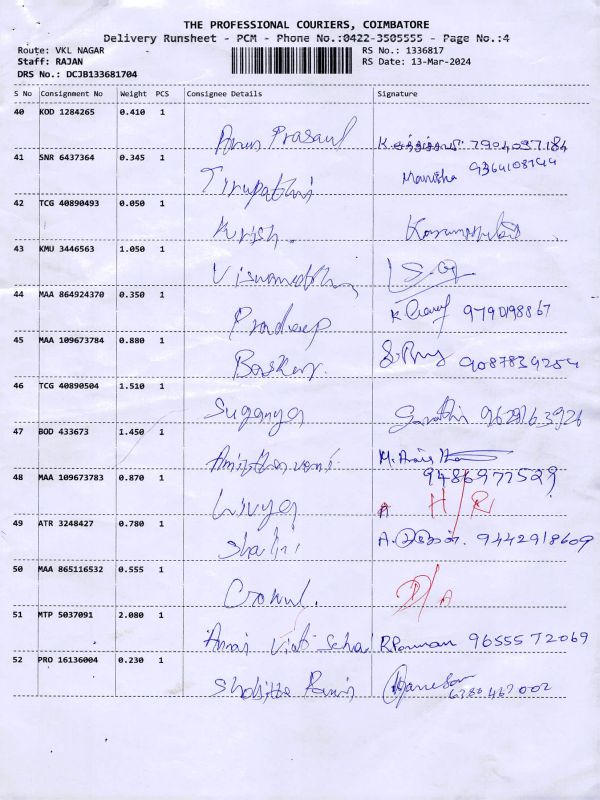 THE PROFESSIONAL COURIERS, COIMBATORE
Delivery Runsheet - PCM - Phone No.:0422-3505555 - Page No.:4
Route: VKL NAGAR RS No.: 1336817
Staff: RAJAN RS Date: 13-Mar-2024
DRS No.: DCJB133681704
S No Consignment No Weight PCS Consignee Details Signature
40 KOD 1284265 0.410 1
Arun Prasad
41 SNR 6437364 0.345 1
Tirupathi Manisha
42 TCG 40890493 0.050 1
Krish.
43 KMU 3446563 1.050 1
44 MAA 864924370 0.350 1
Pradeep 9790198867
45 MAA 109673784 0.880 1
Basker. 9087839254
46 TCG 40890504 1.510 1
Suganya 9629163926
47 BOD 433673 1.450 1
48 MAA 109673783 0.870 1 9486977529
H/R
49 ATR 3248427 0.780 1
Shalini 9442918609
50 MAA 865116532 0.555 1
Gokul. D/A
51 MTP 5037091 2.080 1
9655572069
52 PRO 16136004 0.230 1
6380467002